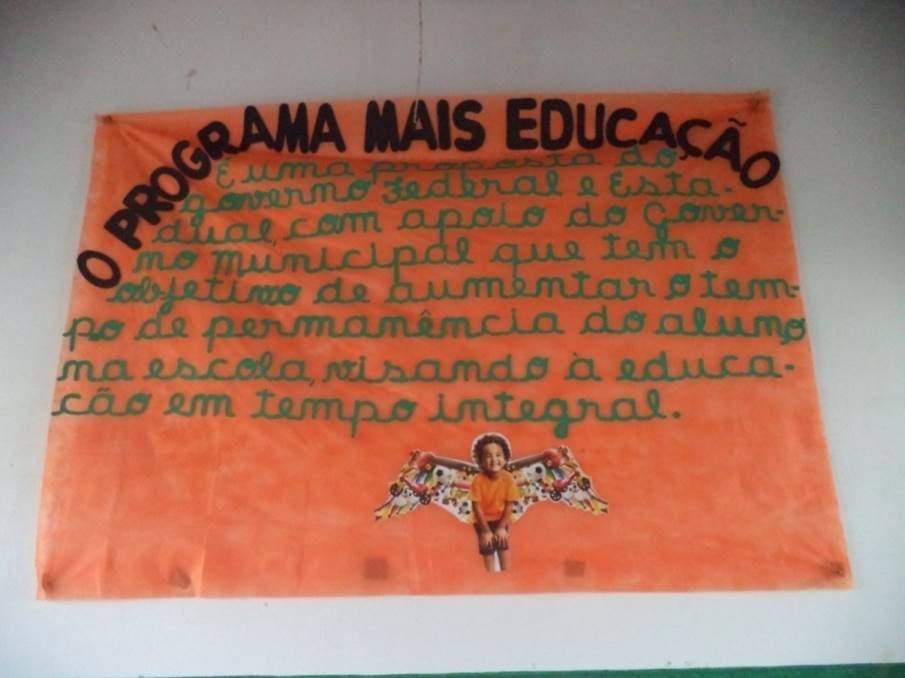 O PROGRAMA MAIS EDUCAÇÃO
É uma proposta do
governo Federal e Esta-
dual, com apoio do Gover-
no municipal que tem o
objetivo de aumentar o tem-
po de permanência do aluno
na escola, visando à educa-
cão em tempo integral.